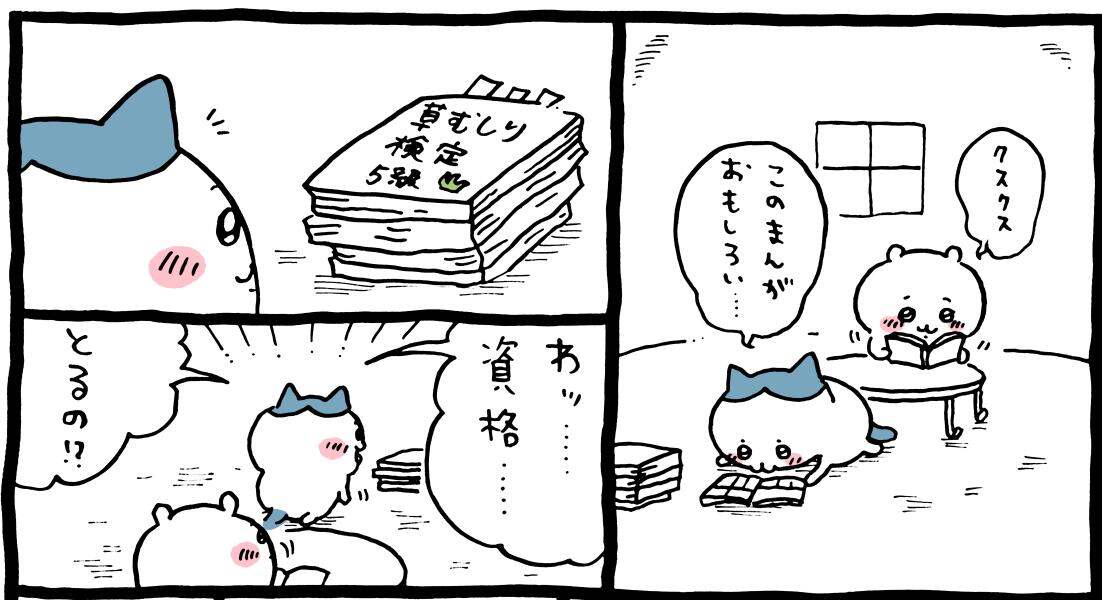 クスクス
このまんが
おもしろい……
草むしり
検定
5級
わッ……
資格……
とるの!?